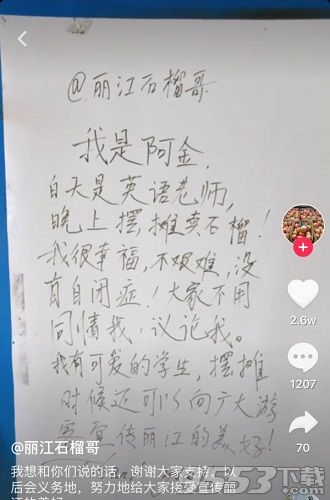 @丽江石榴哥
我是阿金,
白天是英语老师,
晚上摆,摊卖石榴!
我很幸福,不艰难,没
有自闭症!大家不用
同情我,议论我。
我有可爱的学生,摆摊
时候还可以向广大游
客宣传丽江的美好!
2.6w
1207
70
@丽江石榴哥
我想和你们说的话,谢谢大家支持,以
后会义务地,努力地给大家接受宣传丽
江的美好